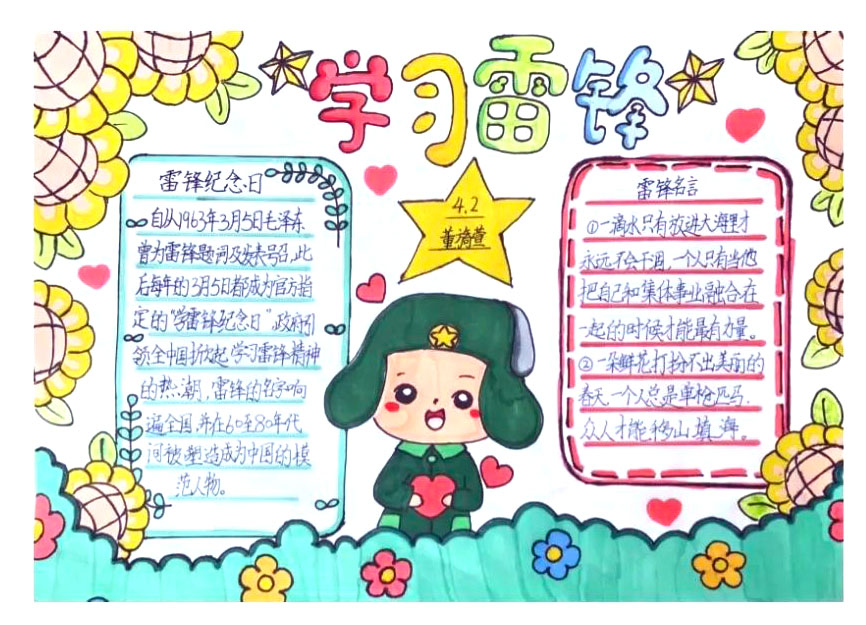 学习雷锋
4.2
董漪萱
雷锋纪念日
自从1963年3月5日毛泽东
曾为雷锋题词及发表号召,此
后每年的3月5日都成为官方指
定的"学雷锋纪念日"政府引
领全中国掀起学习雷锋精神
的热潮,雷锋的名字响
遍全国,并在60至80年代
间被塑造成为中国的模
范人物。
雷锋名言
①一滴水只有放进大海里才
永远不会干涸,一个人只有当他
把自己和集体事业融合在
一起的时候才能最有力量。
②一朵鲜花打扮不出美丽的
春天,一个人总是单枪匹马,
众人才能移山填海。